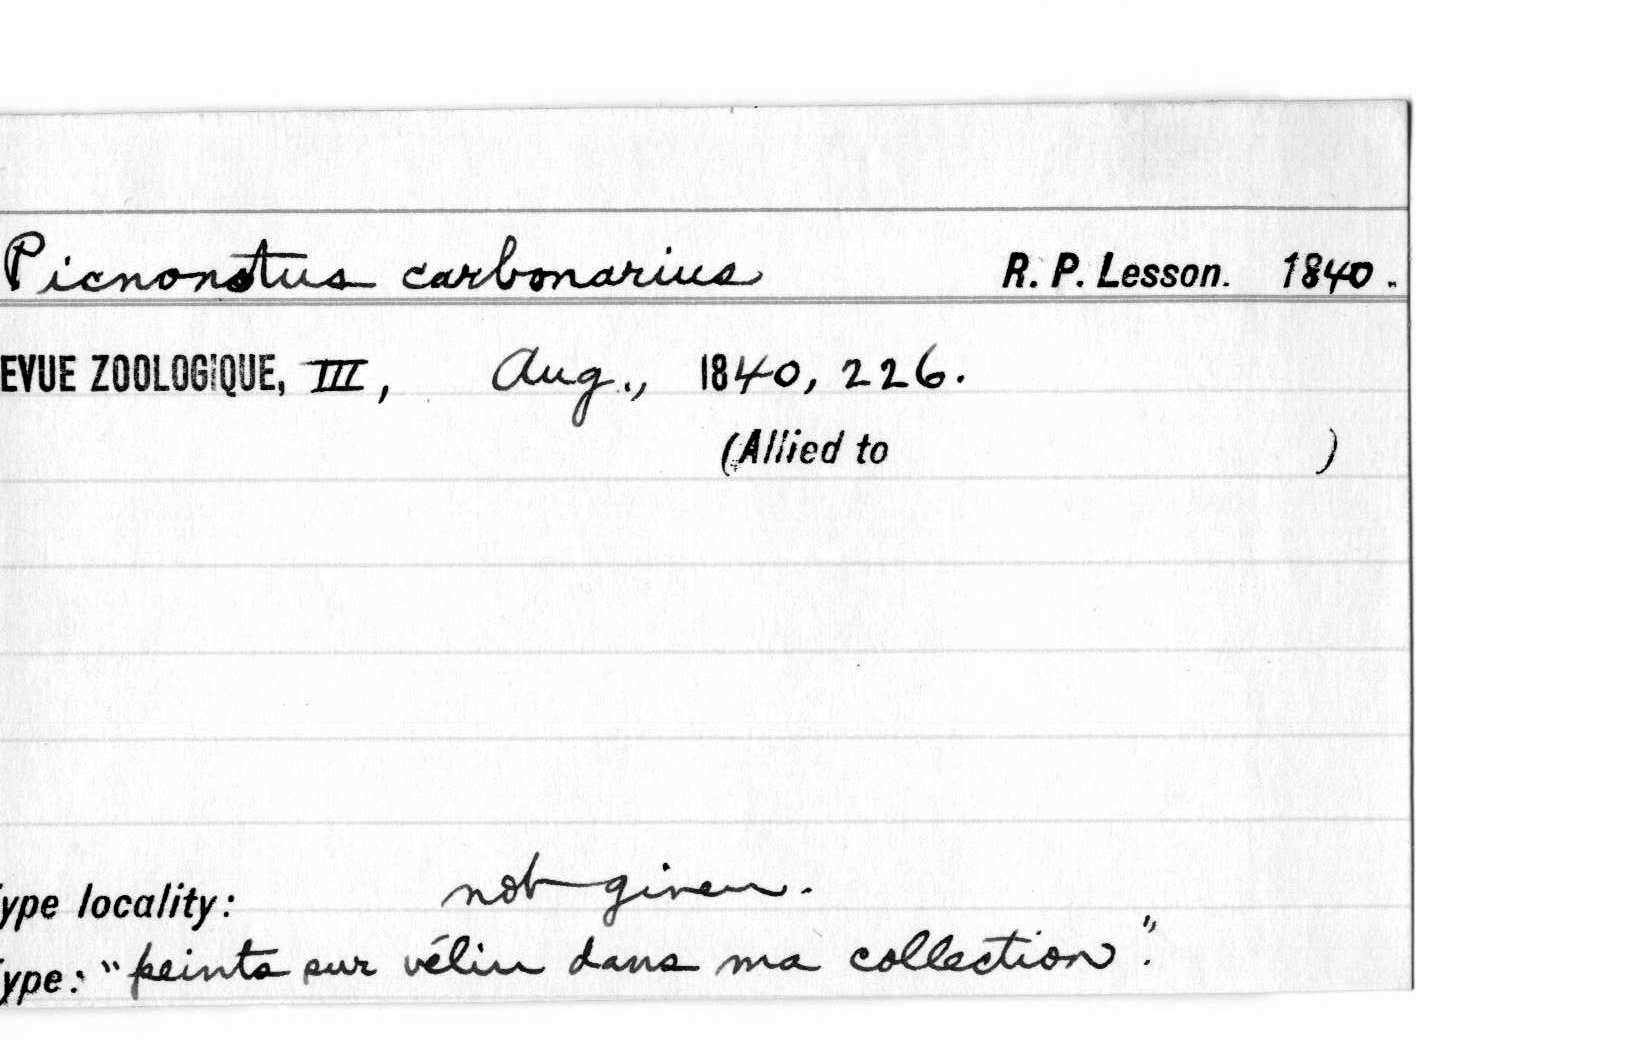 Picnonotus carbonarius R. P. Lesson. 1840.
EVUE ZOOLOGIQUE, III, Aug., 1840, 226.
(Allied to )
ype locality: not given.
ype: "peints sur vélin dans ma collection".